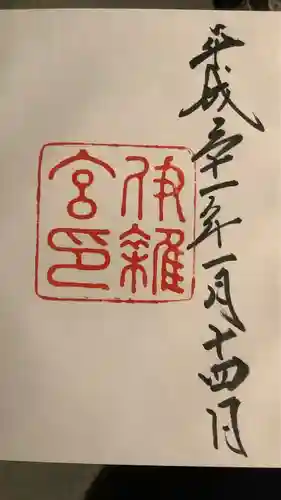 平成三十一年一月十四日
伊雜
宮印